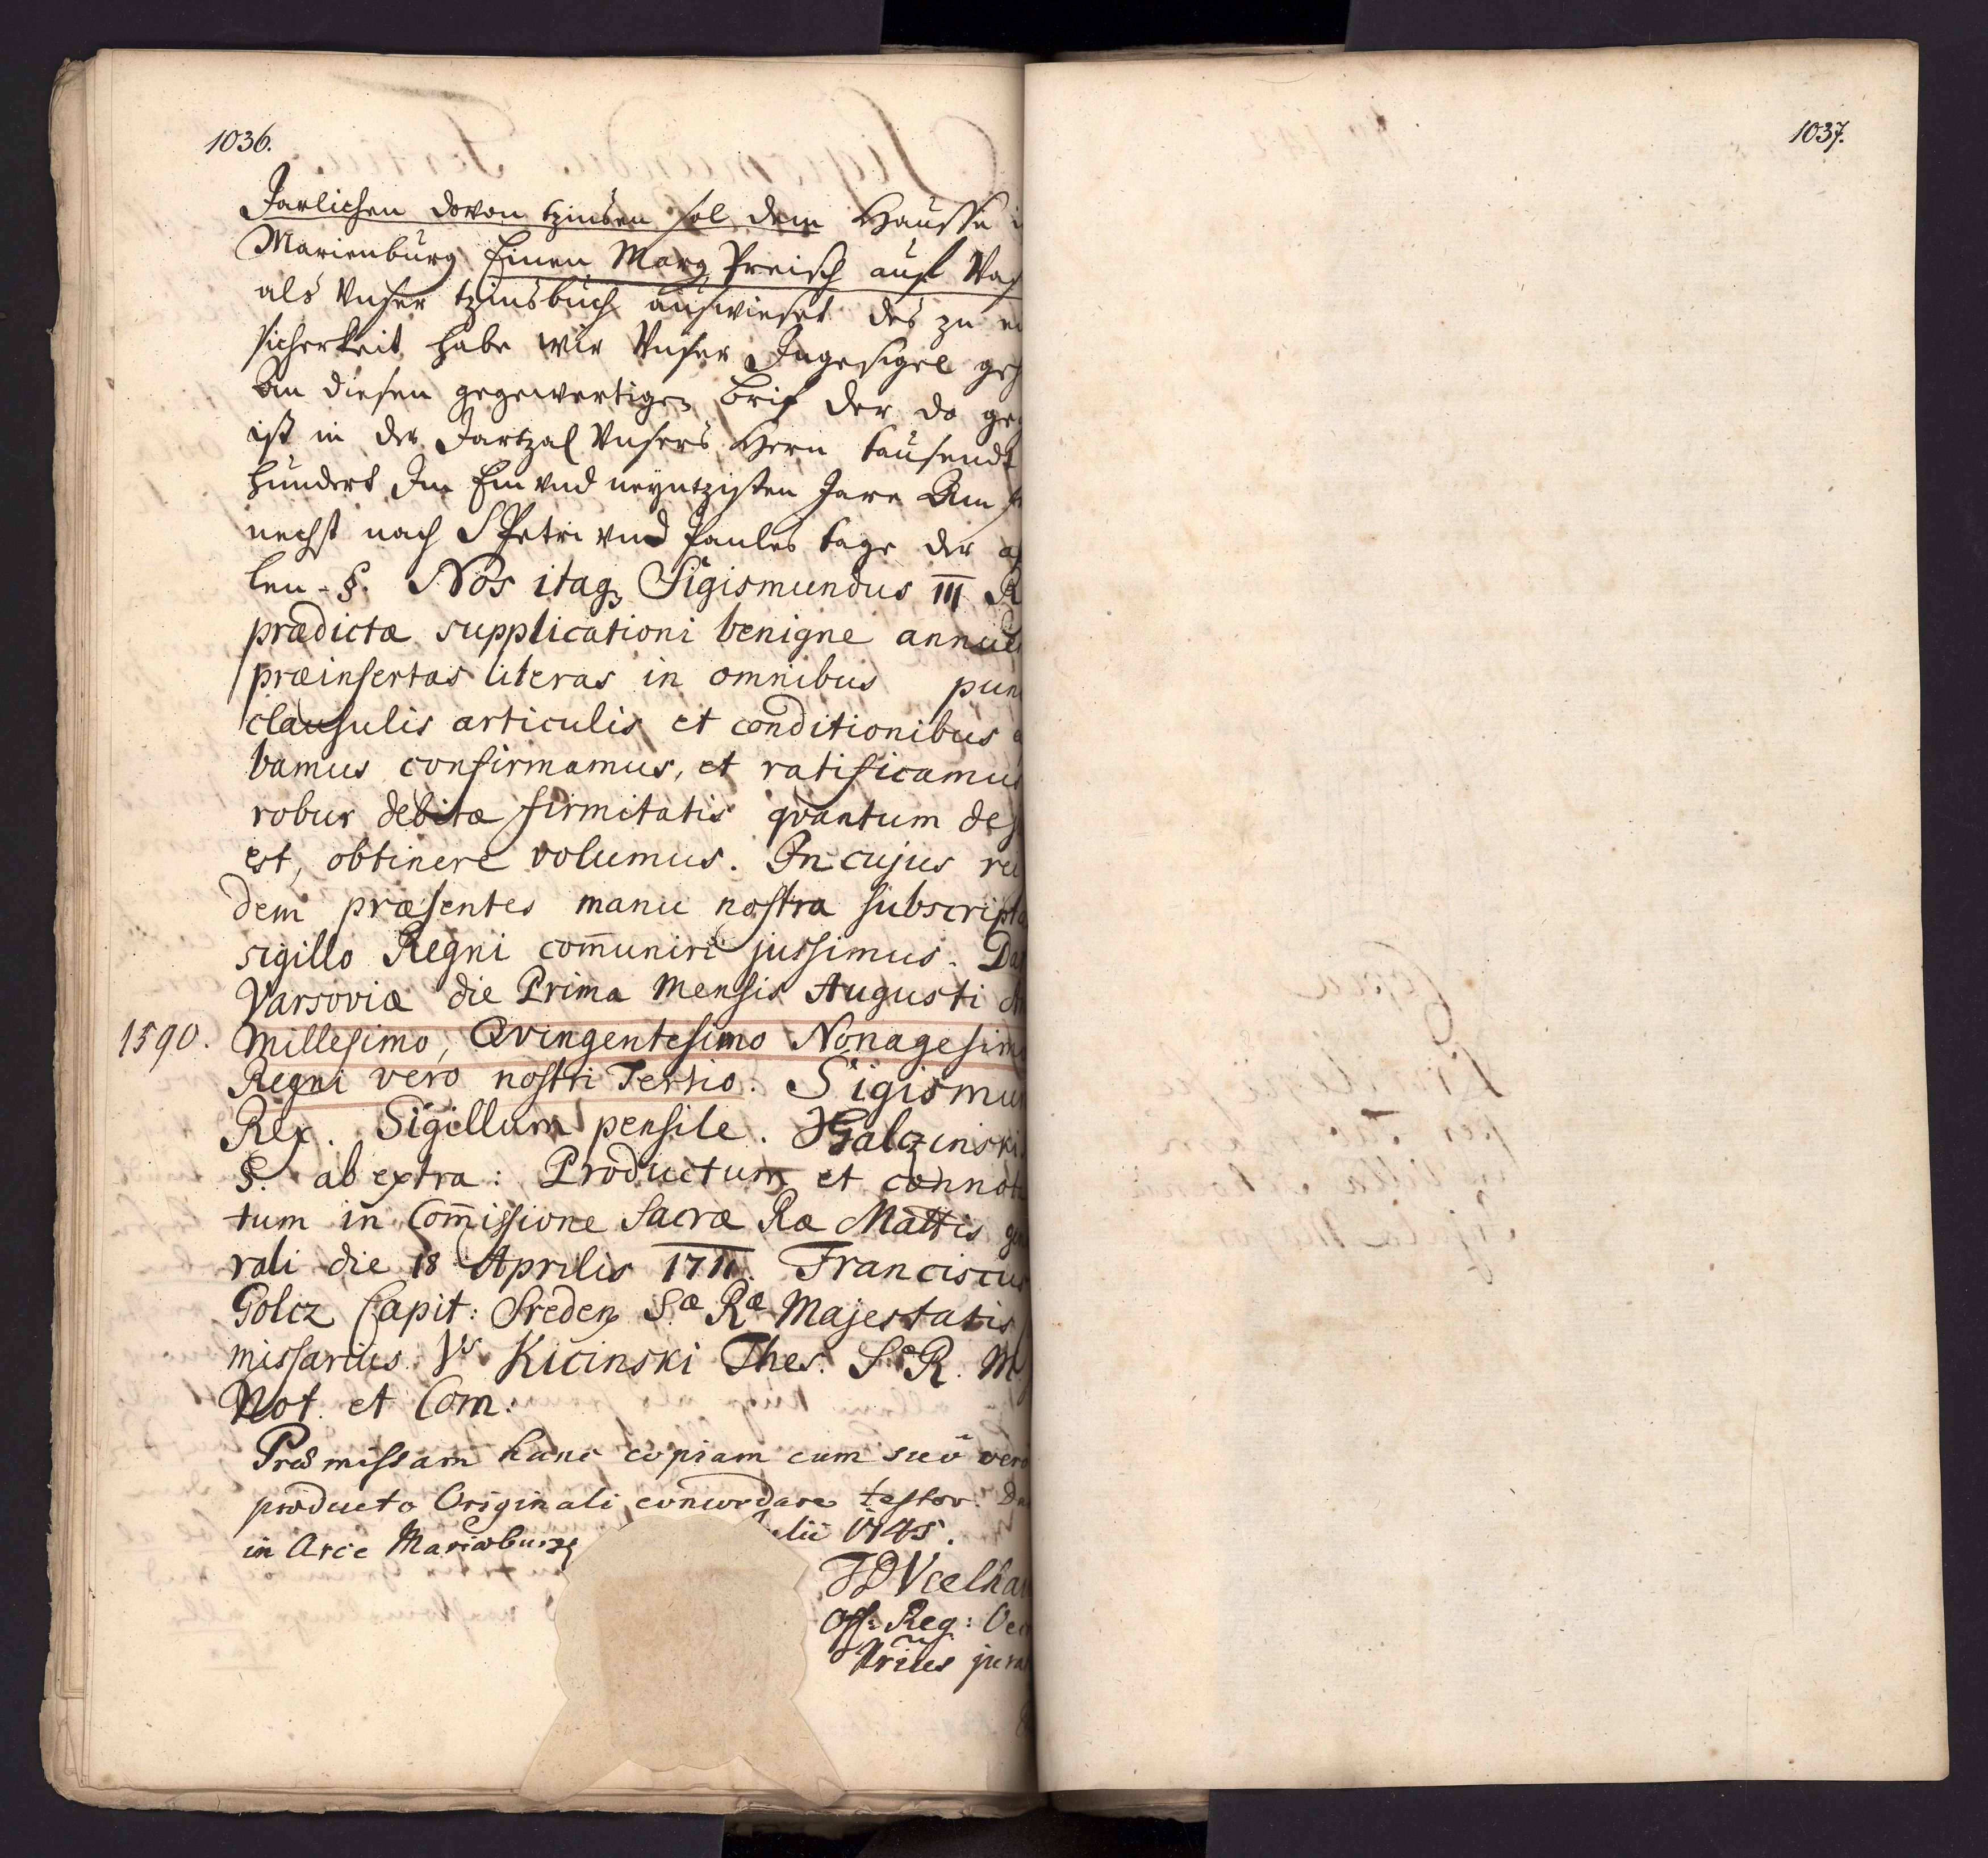 1036.
Jarlichen dovon tzinsen sol dem Hausse
Marienburg Einen Marg Preisch auf
als Vnser tzinsbuch auswieset des zu
sicherkeit habe wir Vnser Ingesigel
An diesen gegewertigen brif der do
ist in der Jartzal Vnsers Hern tausendt
hundert Im Ein vnd neyntzigsten Jare Am
nechst nach S Petri vnd Paules tage der
len - §. Nos itaq₃ Sigismundus III R
prædictæ supplicationi benigne annue
præinsertas literas in omnibus pun
clausulis articulis et conditionibus
bamus confirmamus, et ratificamus
robur debitæ firmitatis qvantum de
est, obtinere volumus. In cujus rei
dem præsentes manu nostra subscript
sigillo Regni com̄unire jussimus. Dat
Varsoviæ die Prima Mensis Augusti
1590. Millesimo, Qvingentesimo Nonagesimo
Regni vero nostri Tertio. Sigismun
Rex. Sigillum pensile. Galczinski
§. ab extra: Productum et connota
tum in Com̄issione Sacræ Ræ Mattis gene
rali die 18 Aprilis 1711. Franciscus
Golcz Capit: Sreden Sæ Ræ Majestatis
missarius. Kicinski Thes. Sæ R. M
Not. et Com:
Præmissam hanc copiam cum suo vero
producto Originali concordare testor. Da
in Arce Mariæburg lii 1745.
Off: Reg: Oec
Nrius jura
1037.